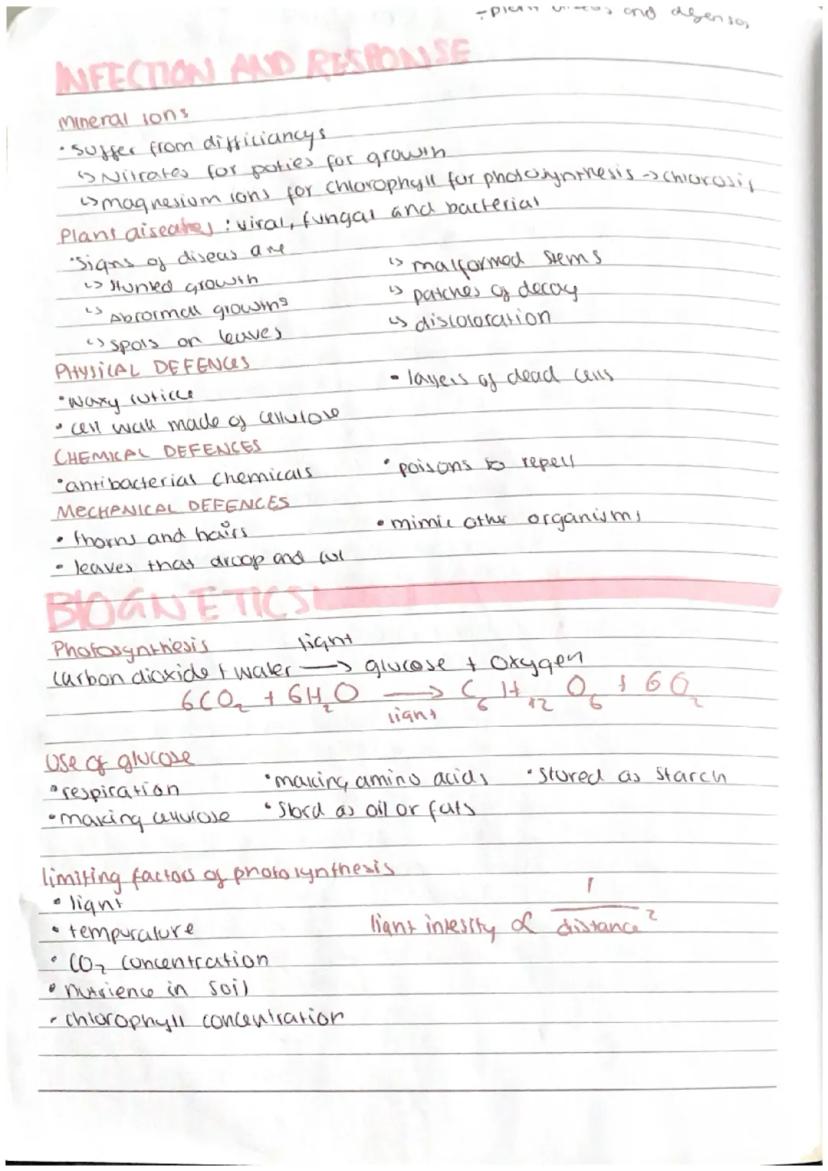 - plant and defenses
INFECTION AND RESPONSE
Mineral ions
• Suffer from difficiancys
↳ Nitrates for poties for growth
↳ magnesium ions for chlorophyll for photosynthesis → chlorosis
Plant diseases : viral, fungal and bacterial
• Signs of diseas are
↳ stunted growth ↳ malformed stems
↳ Abnormal growths ↳ patches of decay
↳ spots on leaves ↳ discoloration
PHYSICAL DEFENCES
• waxy cuticle • layers of dead cells
• cell wall made of cellulose
CHEMICAL DEFENCES
• antibacterial chemicals • poisons to repell
MECHANICAL DEFENCES
• thorns and hairs • mimic other organisms
• leaves that droop and curl
BIOGNETICS
Photosynthesis light
carbon dioxide + water → glucose + oxygen
6CO₂ + 6H₂O → C₆H₁₂O₆ + 6O₂
light
Use of glucose
• respiration • making amino acids • stored as starch
• making cellulose • stord as oil or fats
limiting factors of photosynthesis
• light
• tempurature light intesity ∝ 1/distance²
• CO₂ concentration
• nutrience in soil
• chlorophyll concentration